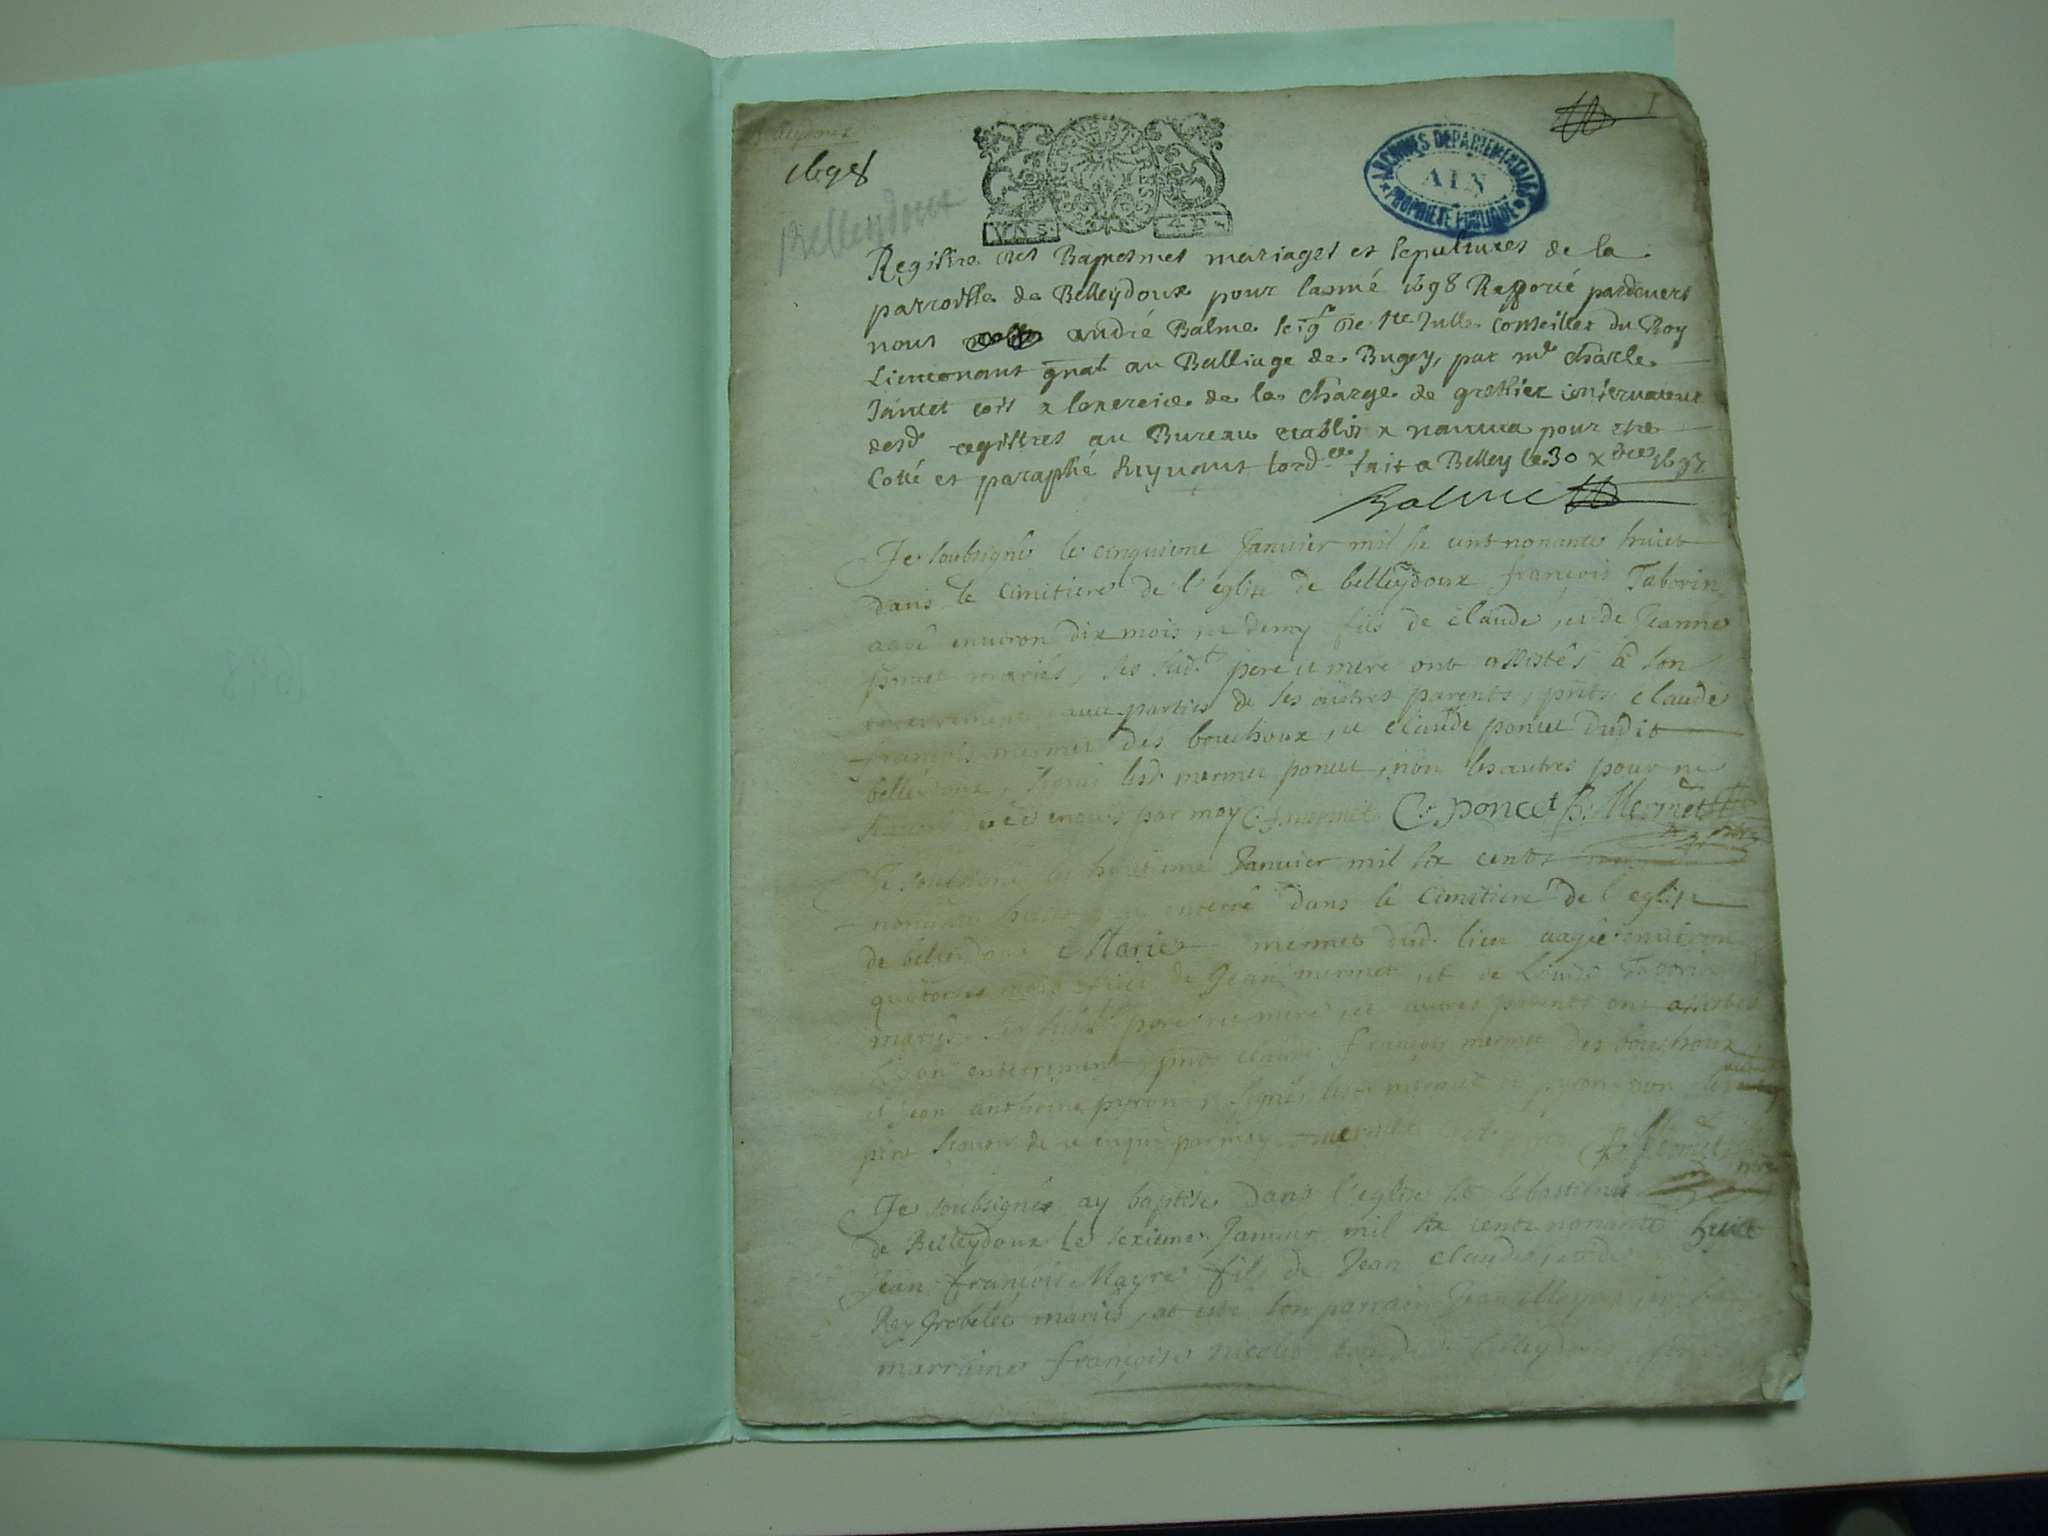 Belleydoux
1698
Belleydoux
I
VN S. 4 D.
ARCHIVES DEPARTEMENTALES
AIN
PROPRIETE PUBLIQUE
Registre des Baptesmes mariages et sepultures de la
parroisse de Belleydoux pour lanné 1698 Rapporté pardevers
nous andré Balme seigr de Ste Julle conseiller du Roy
Lieutenant gnal au Balliage de Bugey, par me charle
Jantet à lexercice de la charge de greffier conservateur
desd registres au Bureau establi a nantua pour etre
Cotté et paraphé suyvant lord.ce fait a Belley le 30 xbre 1697
Balme
Je soubsigné le cinquieme Janvier mil six cent nonante huict
dans le cimitiere de l'eglise de belleydoux françois Taborin
aagé environ dix mois et demy fils de claude, et de Jeanne
poncet mariés, ses susd.t pere et mere ont assistés à son
enterrement avec parties de ses autres parents, pnts claude
françois mermet des bouchoux, et claude poncet dudit
belleydoux, signé lesd. mermet poncet, non les autres pour ne
scavoir de ce enquis par moy C. f. mermet C. poncet Mermet
Je soubsigné le huictieme Janvier mil six cents
nonante huict ay enterré dans le cimitiere de l'eglise
de belleydoux Marie mermet dud. lieu aagée environ
quatorze mois fille de Jean mermet, et de Louise Taborin
mariés. ses susd.t pere et mere, et autres parents ont assistés
à son enterrement, pnts claude françois mermet des bouchoux,
et Jean anthoine pyron, signés lesd. mermet et pyron non les autres
pour scavoir de ce enquis par moy
Je soubsigné ay baptisé dans l'eglise St Sebastien
de Belleydoux le sexieme Janvier mil six cent nonante huict
Jean françois Mayre fils de Jean claude, et de
Rey Grobelet mariés, at esté son parrain Jean et sa
marraine françoise